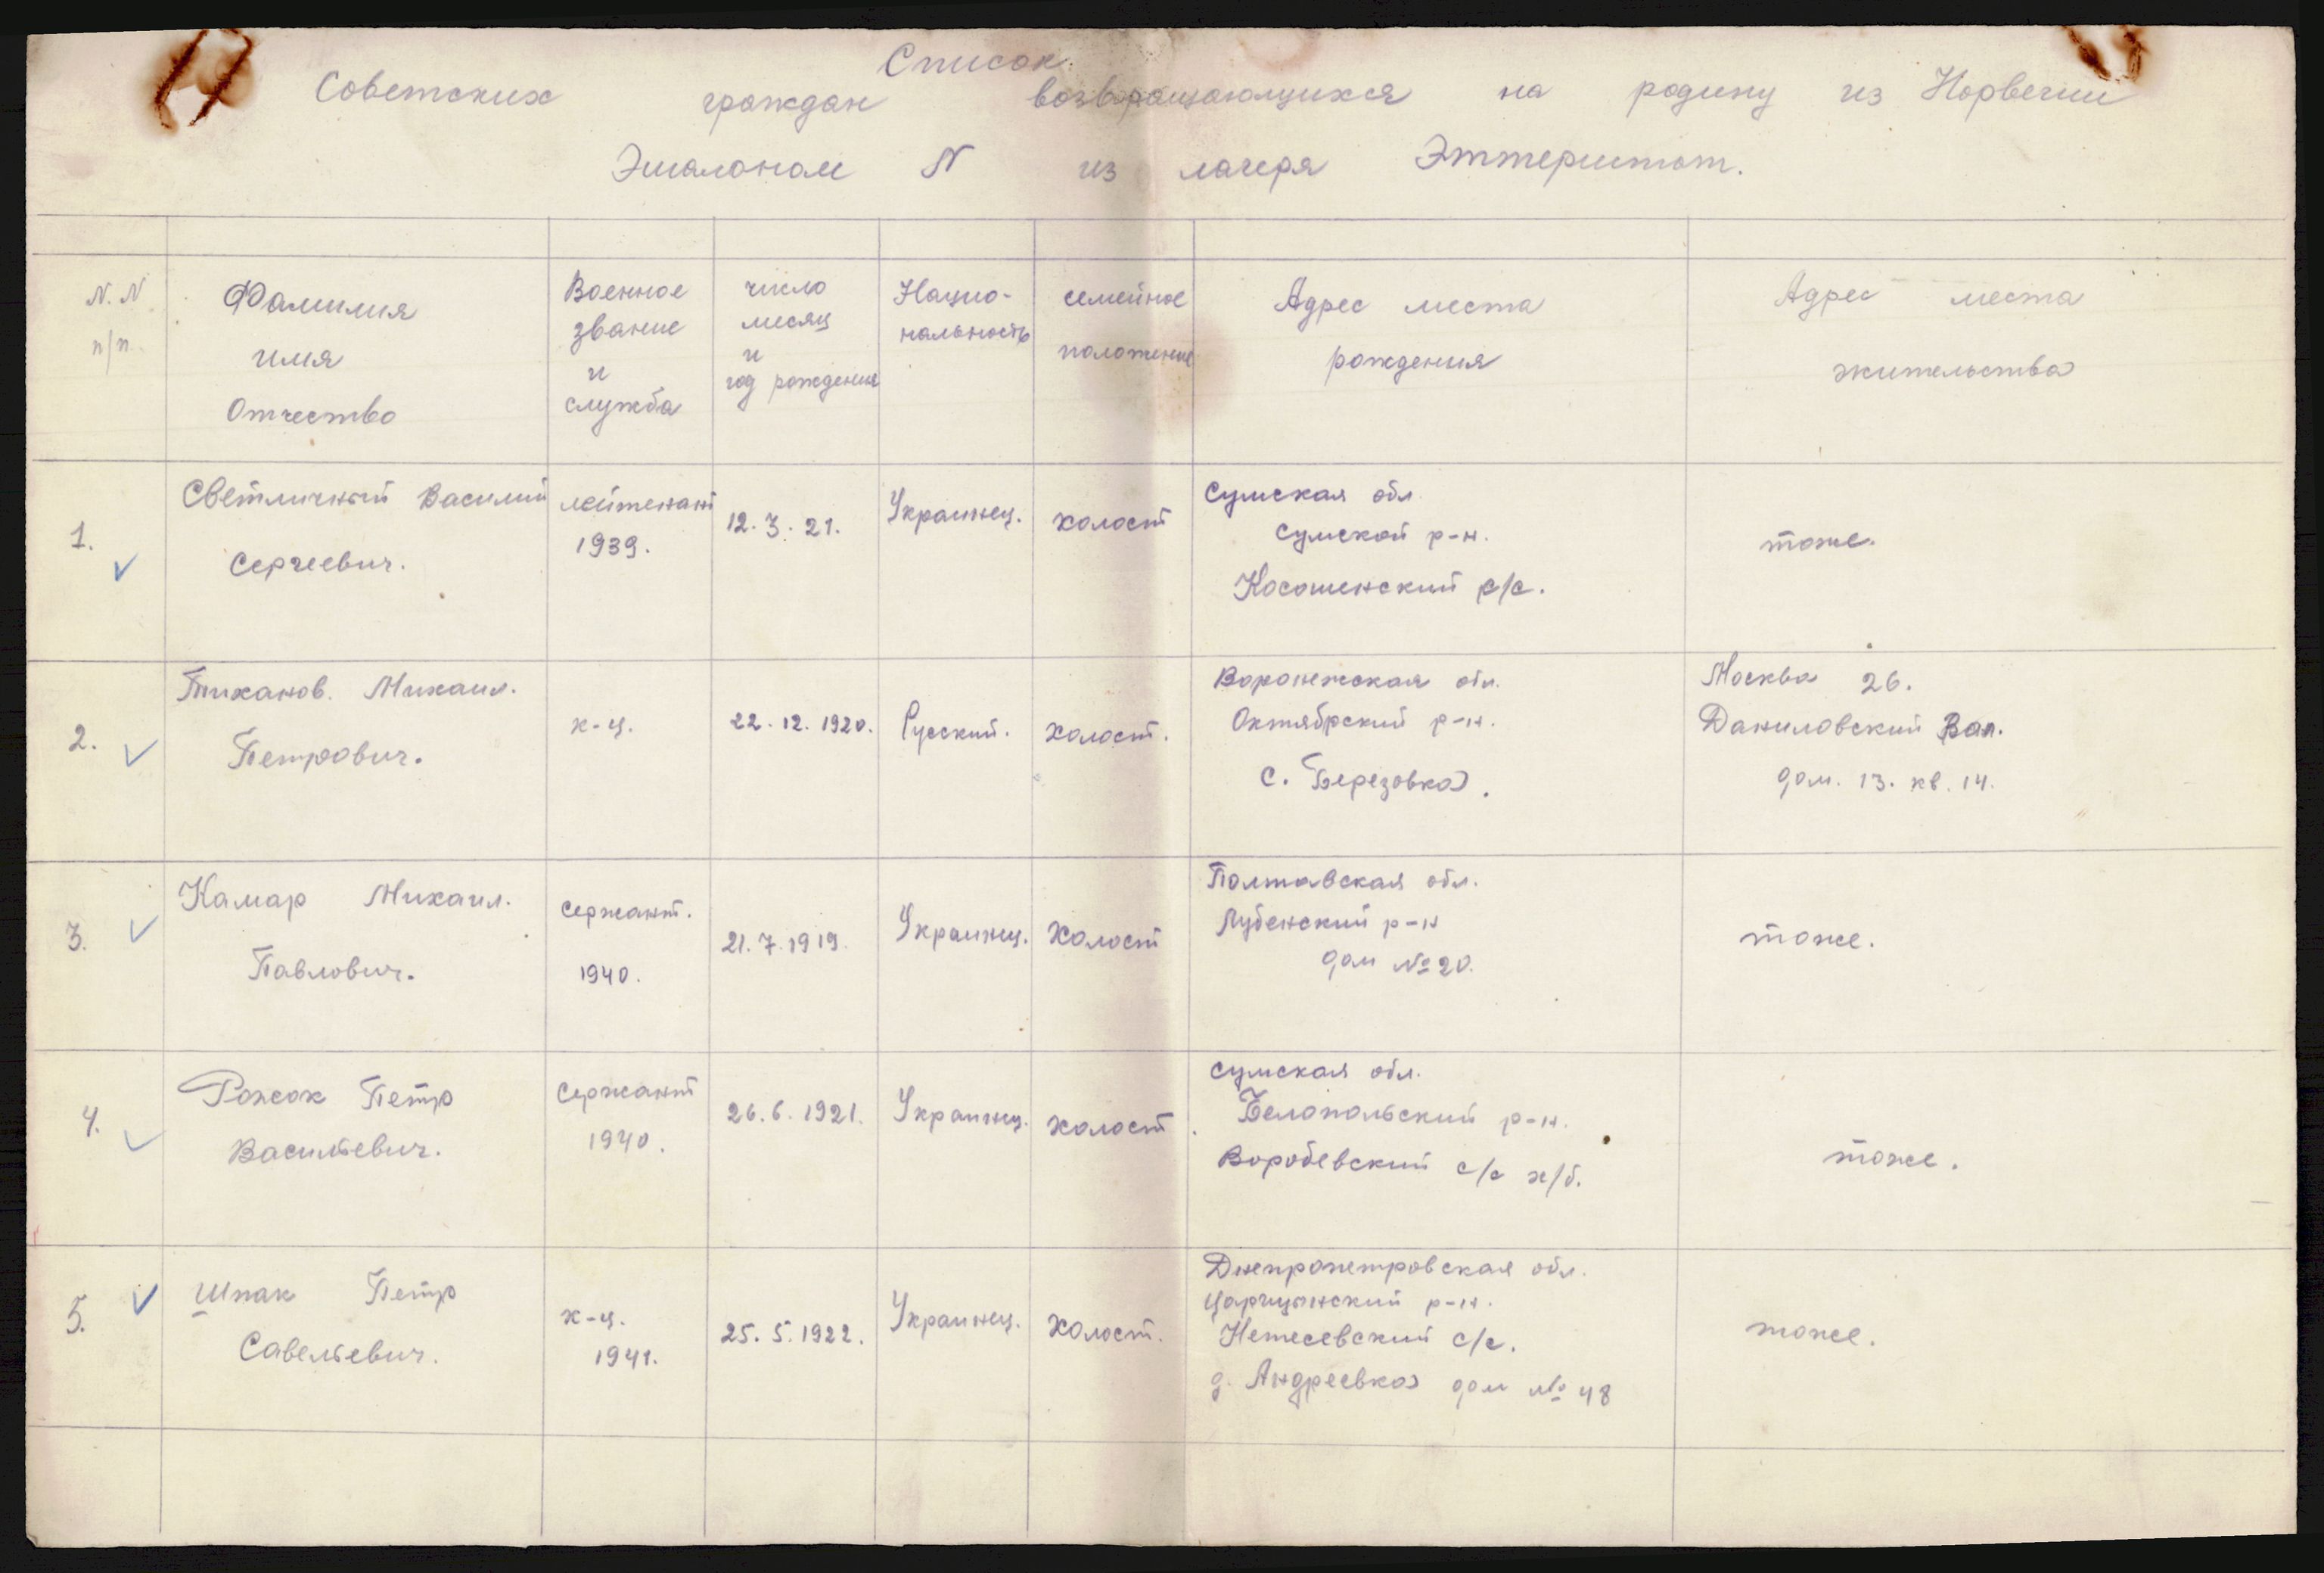 Список.
Советских граждан возвращающихся на родину из Норвегии
Эшалоном N из лагеря Эттеритом.
N.N п/п.
Фамилия
имя
Отчество
Военное
звание
и
служба
число
месяц
и
год рождения
Нацио-
нальность
семейное
положение
Адрес места
рождения
Адрес места
жительства
1.
Светличный Василий
Сергеевич.
лейтенант
1939.
12.3.21.
Украинец.
холост
Сумская обл.
Сумской р-н.
Косошенский с/с.
тоже.
2.
Тиханов. Михаил.
Петрович.
к-ц.
22.12.1920.
Русский.
холост.
Воронежская обл.
Октябрский р-н.
с. Березовка.
Москва 26.
Даниловский Вал.
дом. 13. кв. 14.
3.
Камар Михаил.
Павлович.
сержант.
1940.
21.7.1919.
Украинец.
холост
Полтавская обл.
Лубенский р-н
дом №20.
тоже.
4.
Рожок Петр
Васильевич.
Сержант
1940.
26.6.1921.
Украинец.
холост
Сумская обл.
Белопольский р-н.
Воробевский с/с х/б.
тоже.
5.
Шпак Петр
Савельевич.
к-ц.
1941.
25.5.1922.
Украинец.
холост.
Днепропетровская обл.
Царицынский р-н.
с/с.
д. Андреевка дом № 48
тоже.